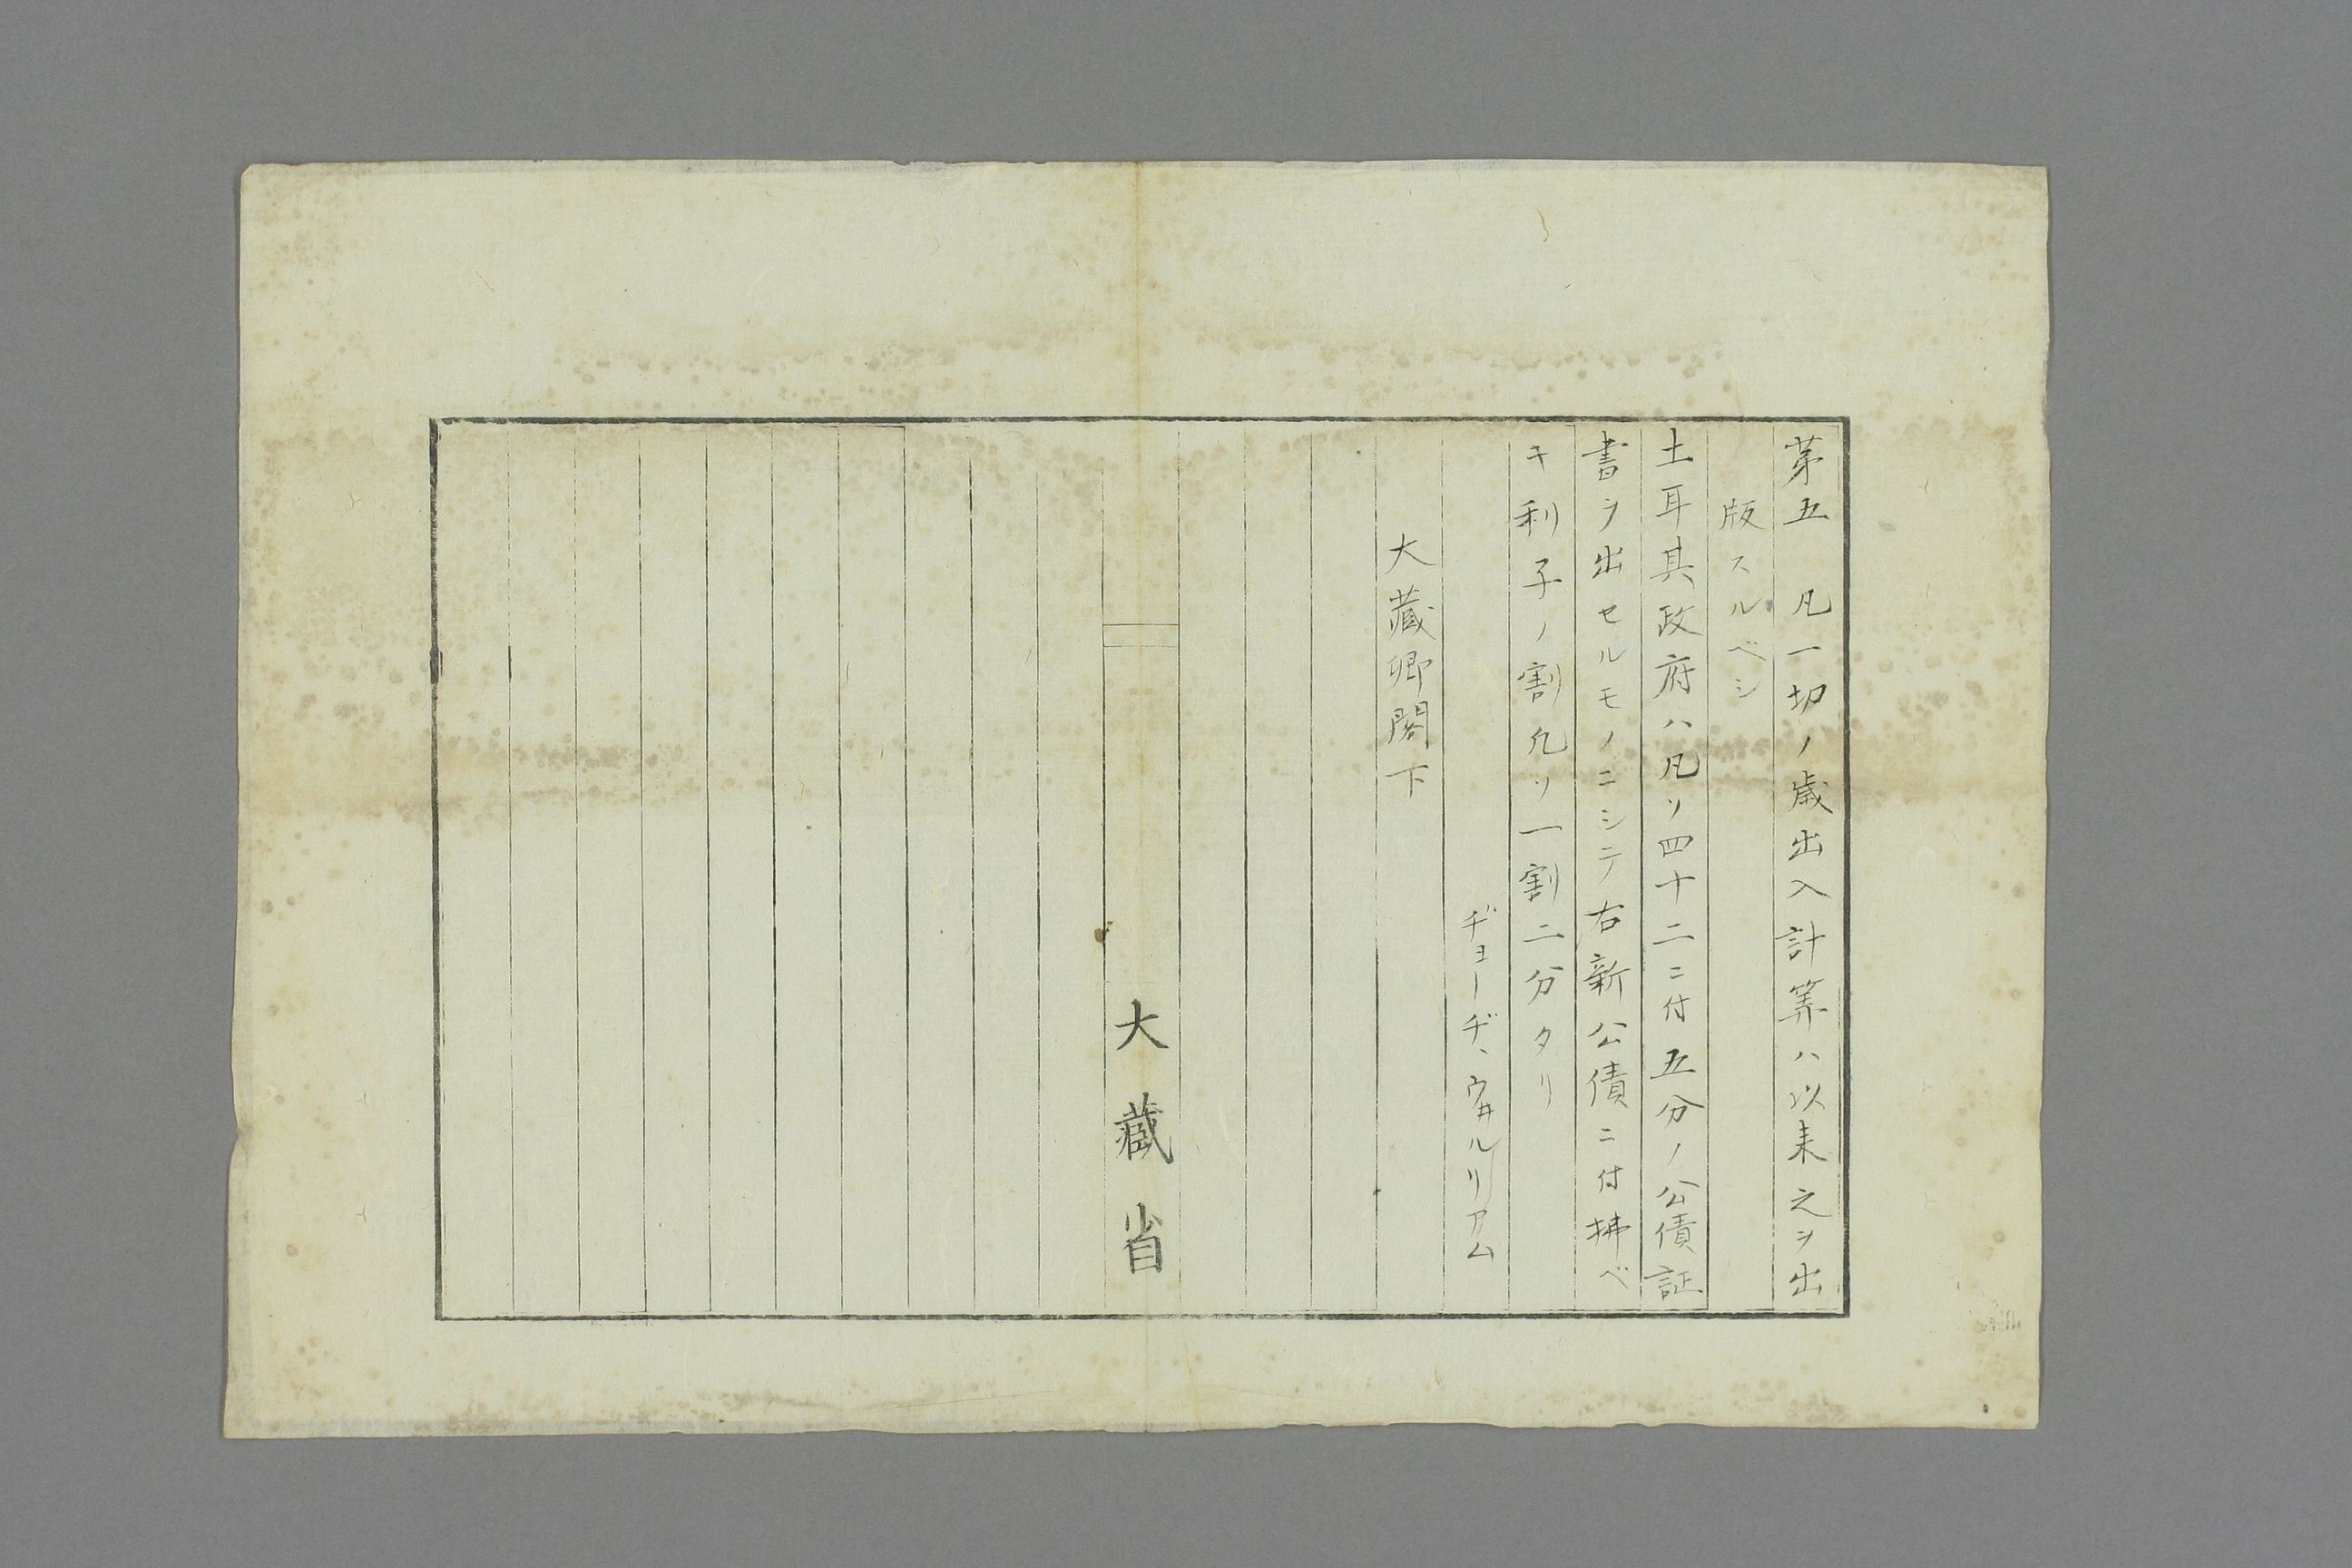 第五　凡一切ノ歳出入計算ハ以来之ヲ出
版スルベシ
土耳其政府ハ凡ソ四十二ニ付五分ノ公債証
書ヲ出セルモノニシテ右新公債ニ付拂ベ
キ利子ノ割凡ソ一割二分タリ
ヂョーヂ、ウ井ルリアム
大藏卿閣下
大藏省